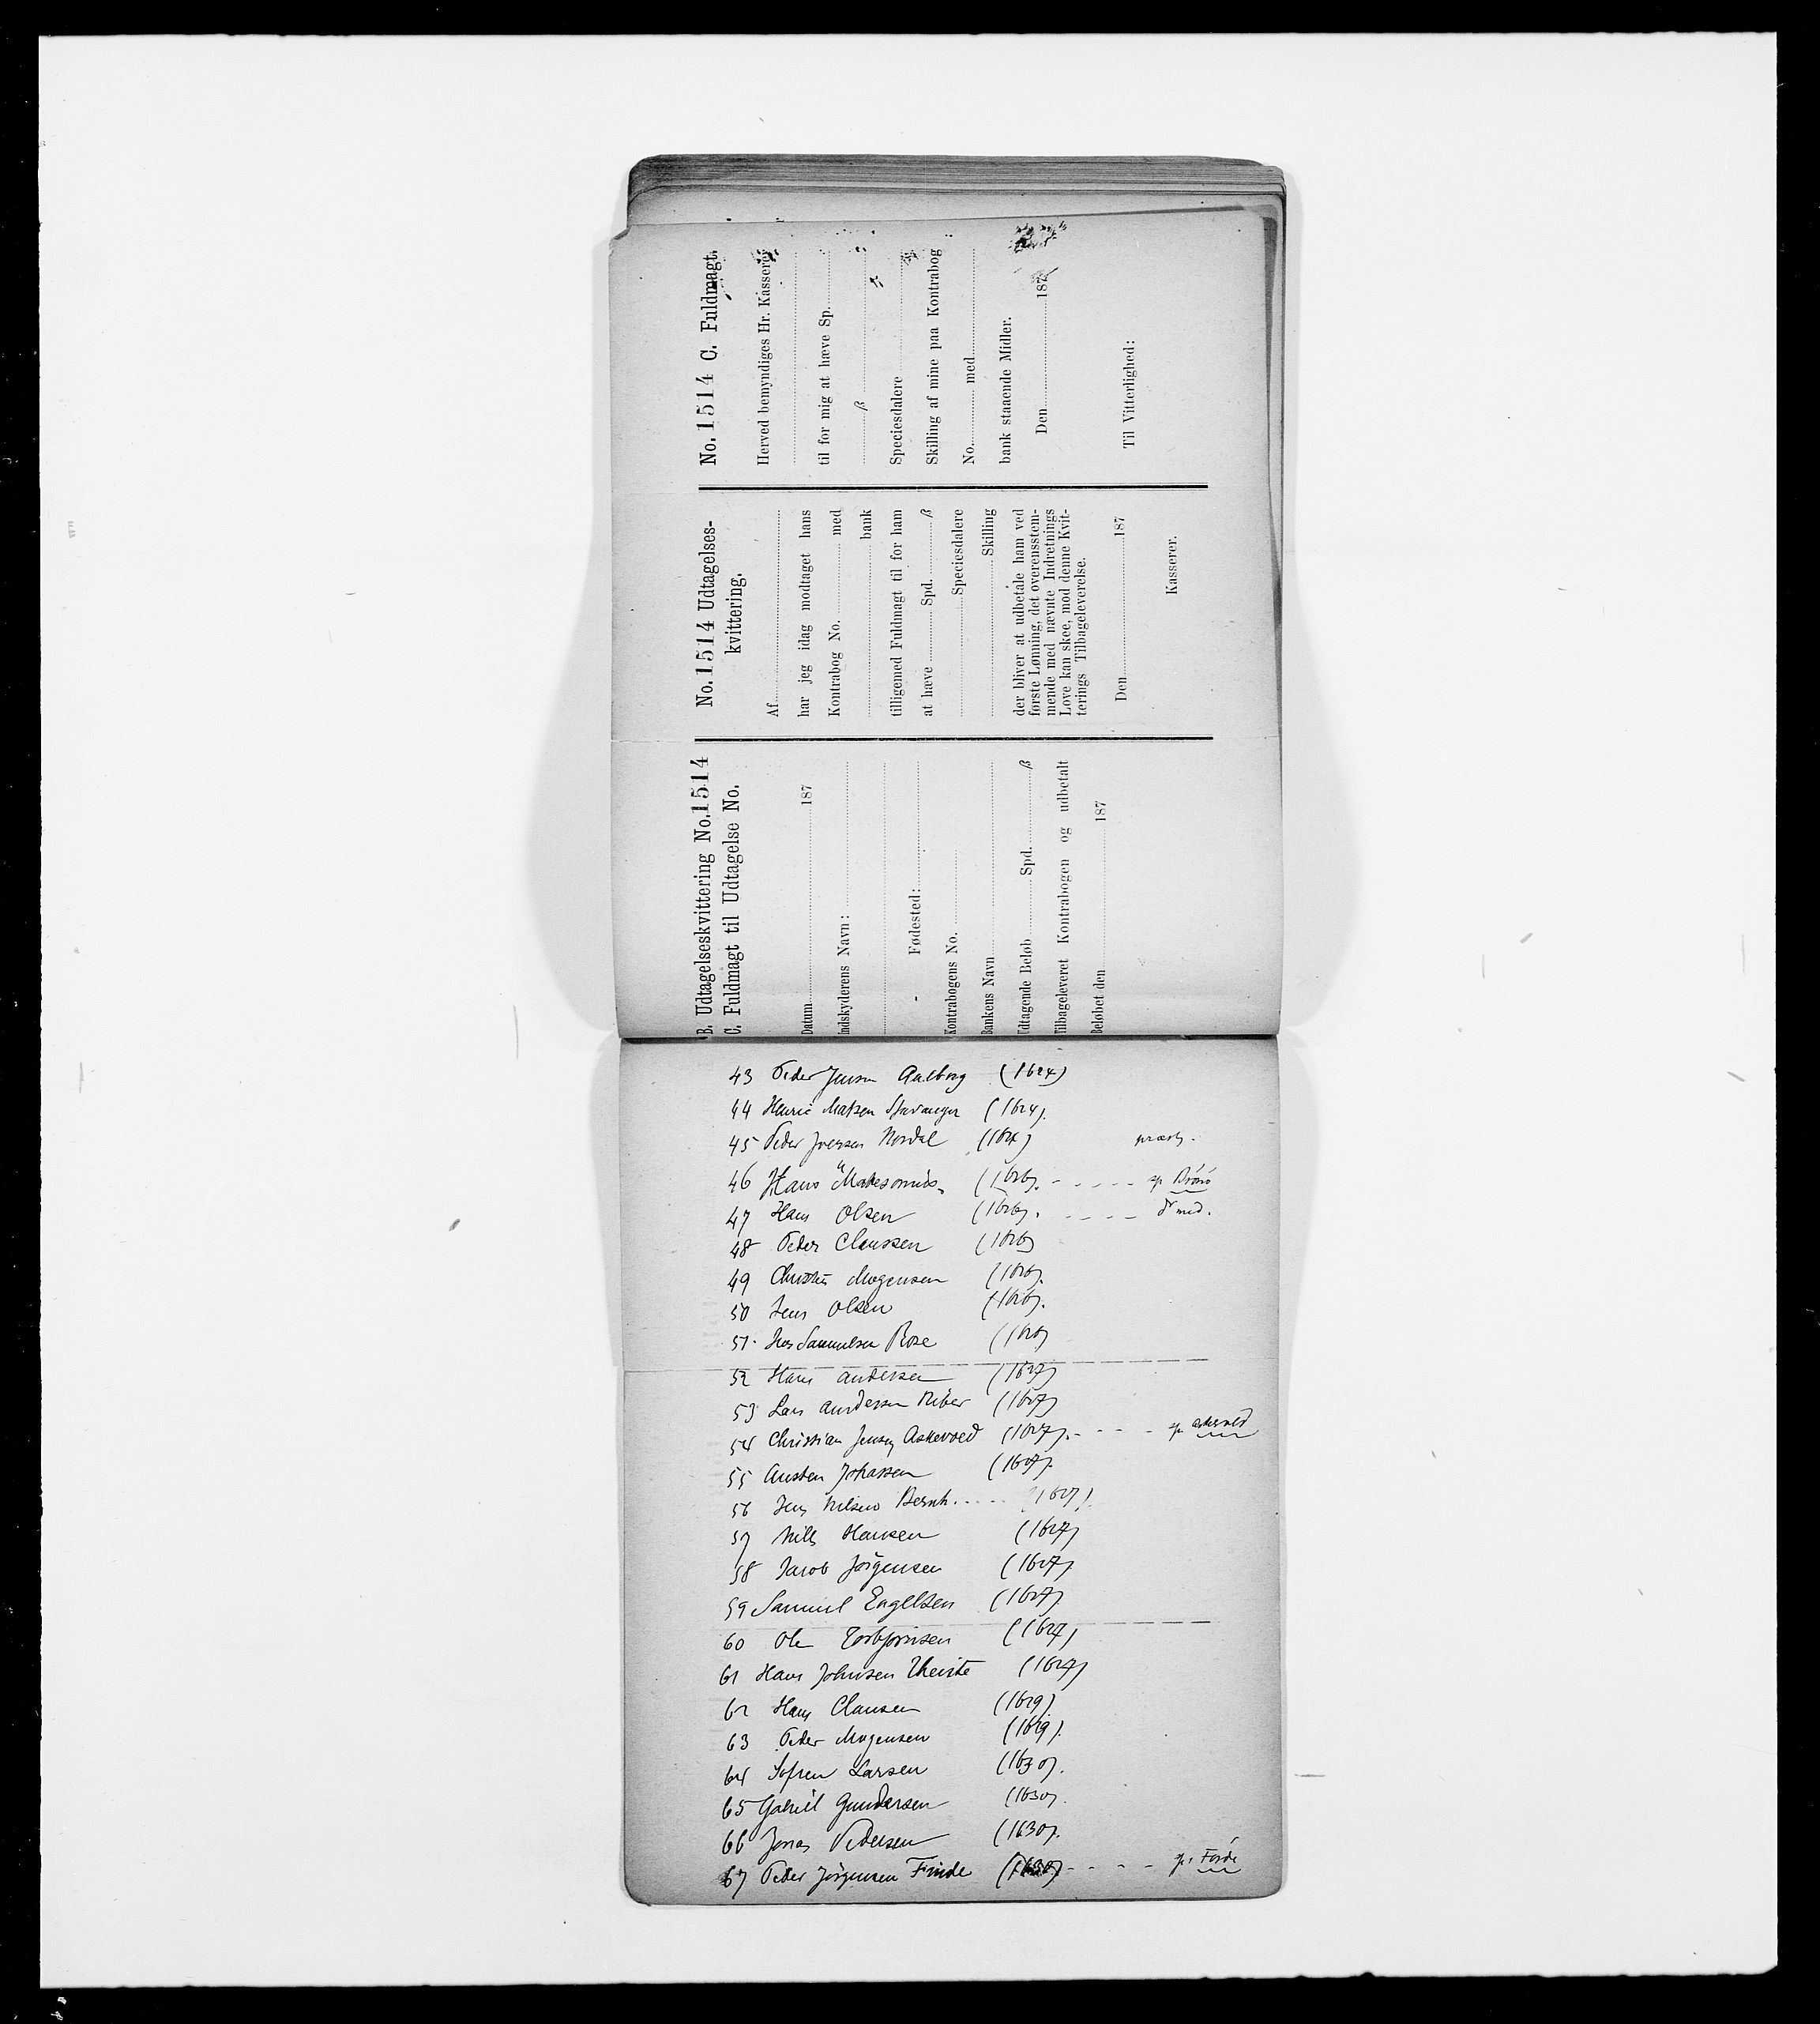 B. Udtagelseskvittering No. 1514
C. Fuldmagt til Udtagelse No.
Datum 187
Indskyderens Navn:
Fødested:
Kontrabogens No.
Bankens Navn
Udtagende Beløb Spd. ß
Tilbageleveret Kontrabogen og udbetalt
Beløbet den 187
No. 1514 Udtagelses-
kvittering.
Af
har jeg idag modtaget hans
Kontrabog No. med
bank
tilligemed Fuldmagt til for ham
at hæve Spd. ß
Speciesdalere
Skilling
der bliver at udbetale ham ved
første Lønning, det overensstem-
mende med nævnte Indretnings
Love kan skee, mod denne Kvit-
terings Tilbageleverelse.
Den 187
Kasserer.
No. 1514 C. Fuldmagt.
Herved bemyndiges Hr. Kasserer
til for mig at hæve Sp.
ß
Speciesdalere
Skilling af mine paa Kontrabog
No. med
bank staaende Midler.
Den 187
Til Vitterlighed:
43 Peder Jensen Aalborg (1624)
44 Henric Matsen Stavanger (1624).
45 Peder Iversen Nordal (1624)
46 Hans (1626). - - - - -
47 Hans Olsen (1626). - - - - dr med.
48 Peder Claussen (1626)
49 Christen Mogensen (1626).
50 Jens Olsen (1626).
51. Jens Samuelsen Rose (1626)
52 Hans Andersen (1627)
53 Lars Andersen Riber (1627)
54 Christian Jensen Askevold (1627). - - - - sp Askevold
55 Austen Johassen (1627).
56 Jens Nilsen Bernh. .... (1627).
57 Nills Hansen (1627)
58 Jacob Jörgensen (1627).
59 Samuel Engelsen (1627)
60 Ole Torbjörnsen (1627)
61 Hans Johnsen Theiste (1627)
62 Hans Clausen (1629)
63 Peder Mogensen (1629).
64 Sofren Larsen (1630).
65 Gabriel Gundersen (1630).
66 Jonas Pedersen (1630).
67 Peder Jörgensen Finde (1630) - - - - sp. Förde